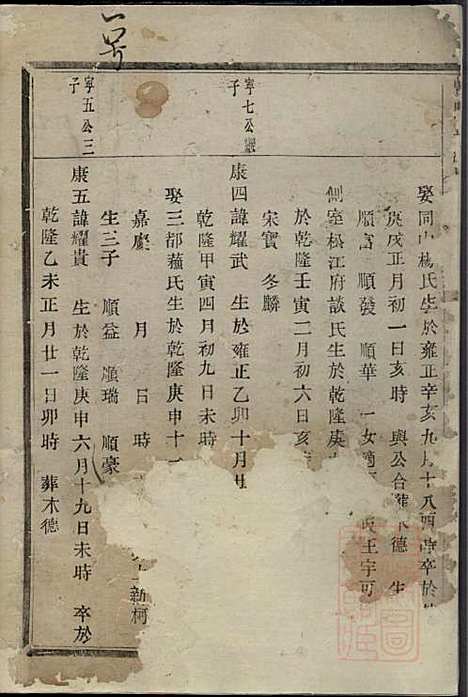 娶同 楊氏生於雍正辛亥九月十八酉時卒於
庚戌正月初一日亥時 與公合葬木德 生
順富 順發 順華 一女適 王宇可
側室松江府談氏生於乾隆庚
於乾隆壬寅二月初六日亥
宋寶 冬麟
寧七公
子
康四諱耀武 生於雍正乙卯十月
乾隆甲寅四月初九日未時
娶三都蘓氏生於乾隆庚申十一
嘉慶 月 日 時
生三子 順益 順瑞 順豪
新柯
寧五公三
子
康五諱耀貴 生於乾隆庚申六月十九日未時 卒於
乾隆乙未正月廿一日卯時 葬木德